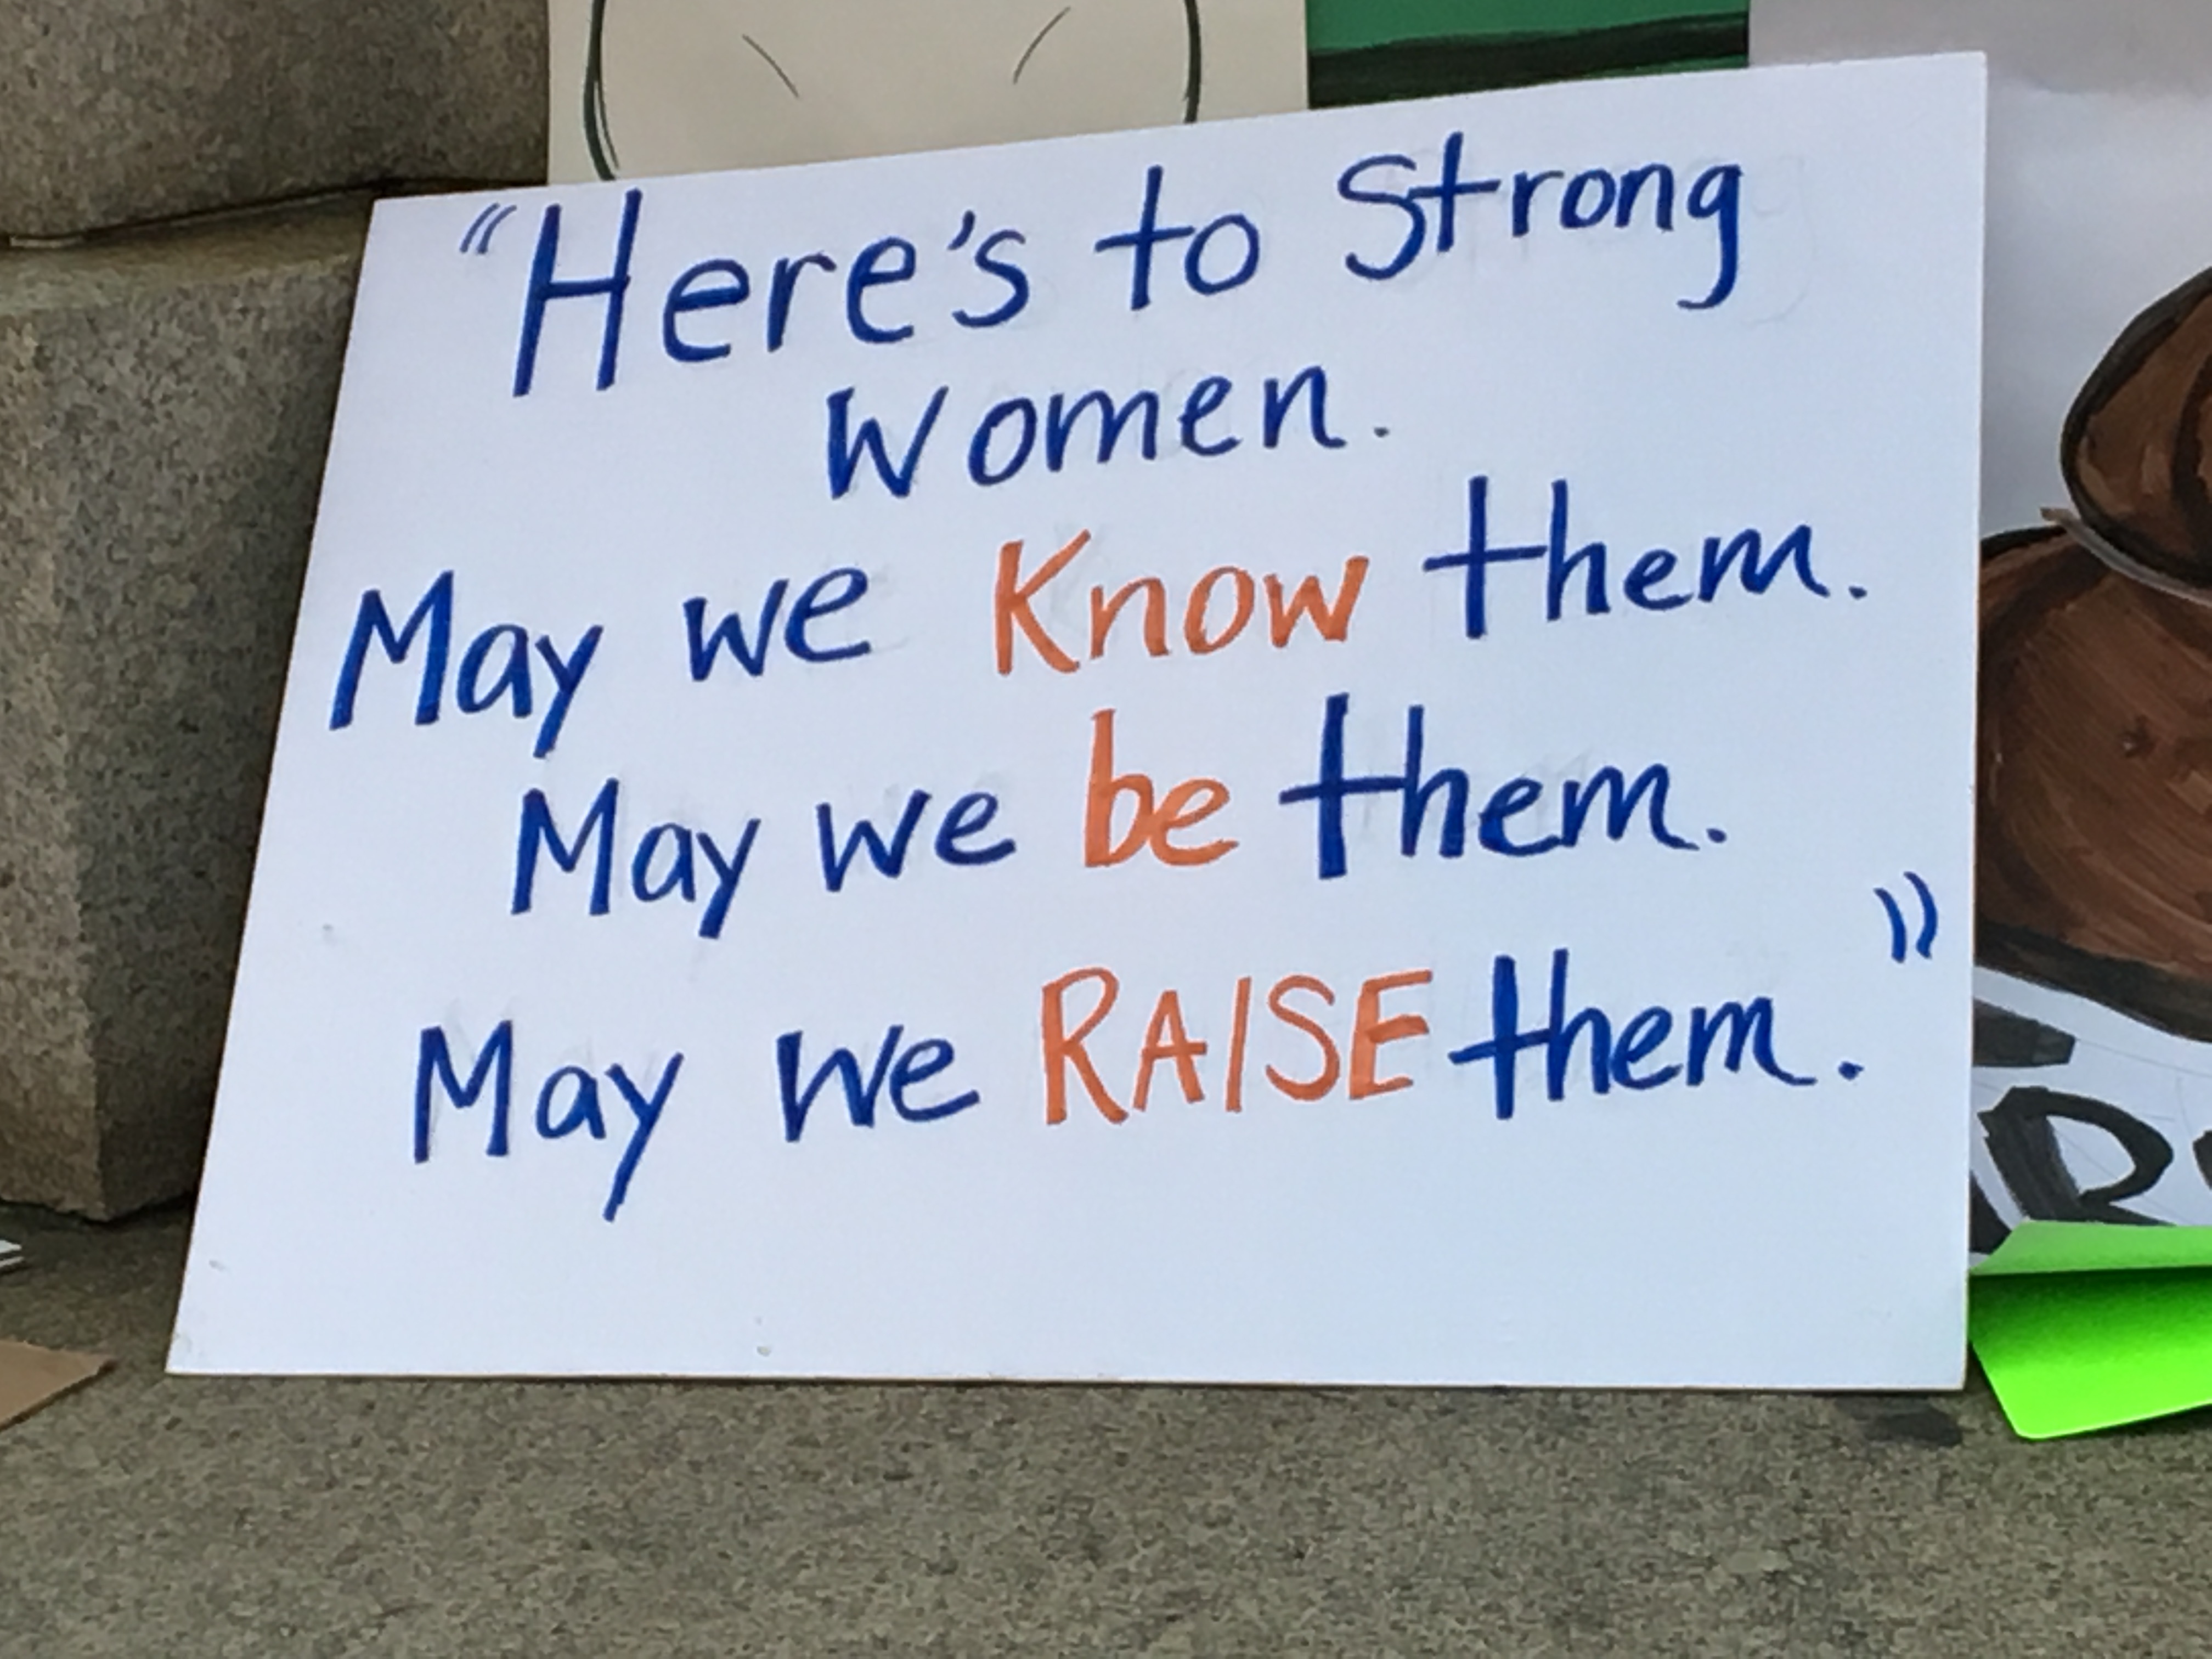 “Here's to Strong
Women.
May we Know them.
May we be them.
May we RAISE them.”